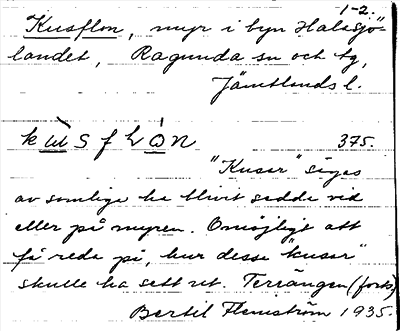 1-2.
Kusflon, myr i byn Halasjö-
landet, Ragunda sn och tg,
Jämtlands l.
375.
"Kusar" säges
av somliga ha blivit sedda vid
eller på myren. Omöjligt att
få reda på, hur desse "kusar"
skulle ha sett ut. Terrängen (forts)
Bertil Flemström 1935.